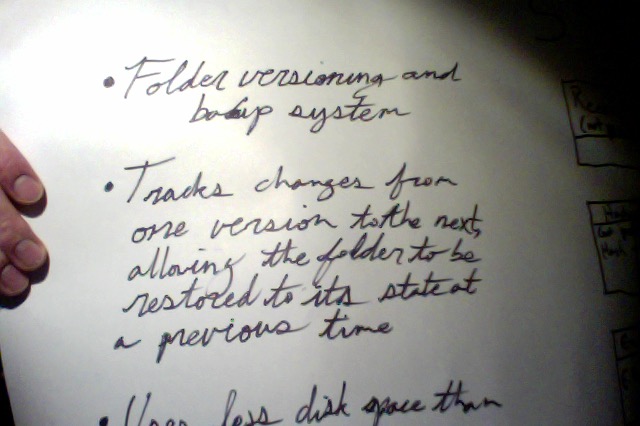 • Folder versioning and
backup system
• Tracks changes from
one version to the next,
allowing the folder to be
restored to its state at
a previous time
• Uses less disk space than